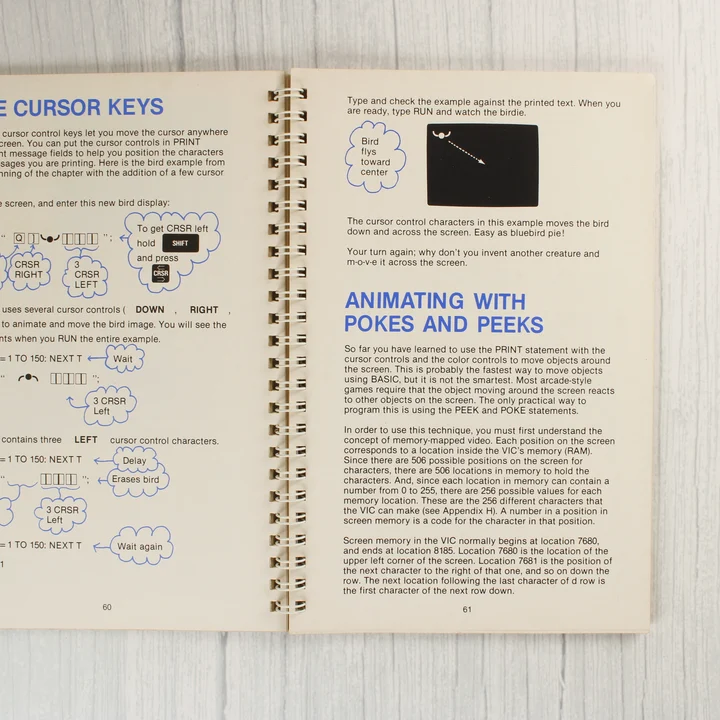 E CURSOR KEYS
cursor control keys let you move the cursor anywhere
creen. You can put the cursor controls in PRINT
nt message fields to help you position the characters
sages you are printing. Here is the bird example from
nning of the chapter with the addition of a few cursor
e screen, and enter this new bird display:
" Q ";
To get CRSR left
hold SHIFT
and press
CRSR
CRSR
RIGHT
3
CRSR
LEFT
uses several cursor controls ( DOWN , RIGHT ,
to animate and move the bird image. You will see the
nts when you RUN the entire example.
= 1 TO 150: NEXT T
Wait
" ";
3 CRSR
Left
contains three LEFT cursor control characters.
= 1 TO 150: NEXT T
Delay
" ";
Erases bird
3 CRSR
Left
= 1 TO 150: NEXT T
Wait again
1
60
Type and check the example against the printed text. When you
are ready, type RUN and watch the birdie.
Bird
flys
toward
center
The cursor control characters in this example moves the bird
down and across the screen. Easy as bluebird pie!
Your turn again; why don't you invent another creature and
m-o-v-e it across the screen.
ANIMATING WITH
POKES AND PEEKS
So far you have learned to use the PRINT statement with the
cursor controls and the color controls to move objects around
the screen. This is probably the fastest way to move objects
using BASIC, but it is not the smartest. Most arcade-style
games require that the object moving around the screen reacts
to other objects on the screen. The only practical way to
program this is using the PEEK and POKE statements.
In order to use this technique, you must first understand the
concept of memory-mapped video. Each position on the screen
corresponds to a location inside the VIC's memory (RAM).
Since there are 506 possible positions on the screen for
characters, there are 506 locations in memory to hold the
characters. And, since each location in memory can contain a
number from 0 to 255, there are 256 possible values for each
memory location. These are the 256 different characters that
the VIC can make (see Appendix H). A number in a position in
screen memory is a code for the character in that position.
Screen memory in the VIC normally begins at location 7680,
and ends at location 8185. Location 7680 is the location of the
upper left corner of the screen. Location 7681 is the position of
the next character to the right of that one, and so on down the
row. The next location following the last character of d row is
the first character of the next row down.
61